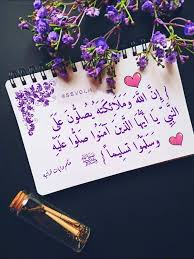 @SSVOLM
﴿ إِنَّ اللَّهَ وَمَلَائِكَتَهُ يُصَلُّونَ عَلَى
النَّبِيِّ يَا أَيُّهَا الَّذِينَ آمَنُوا صَلُّوا عَلَيْهِ
وَسَلِّمُوا تَسْلِيمًا ﴾